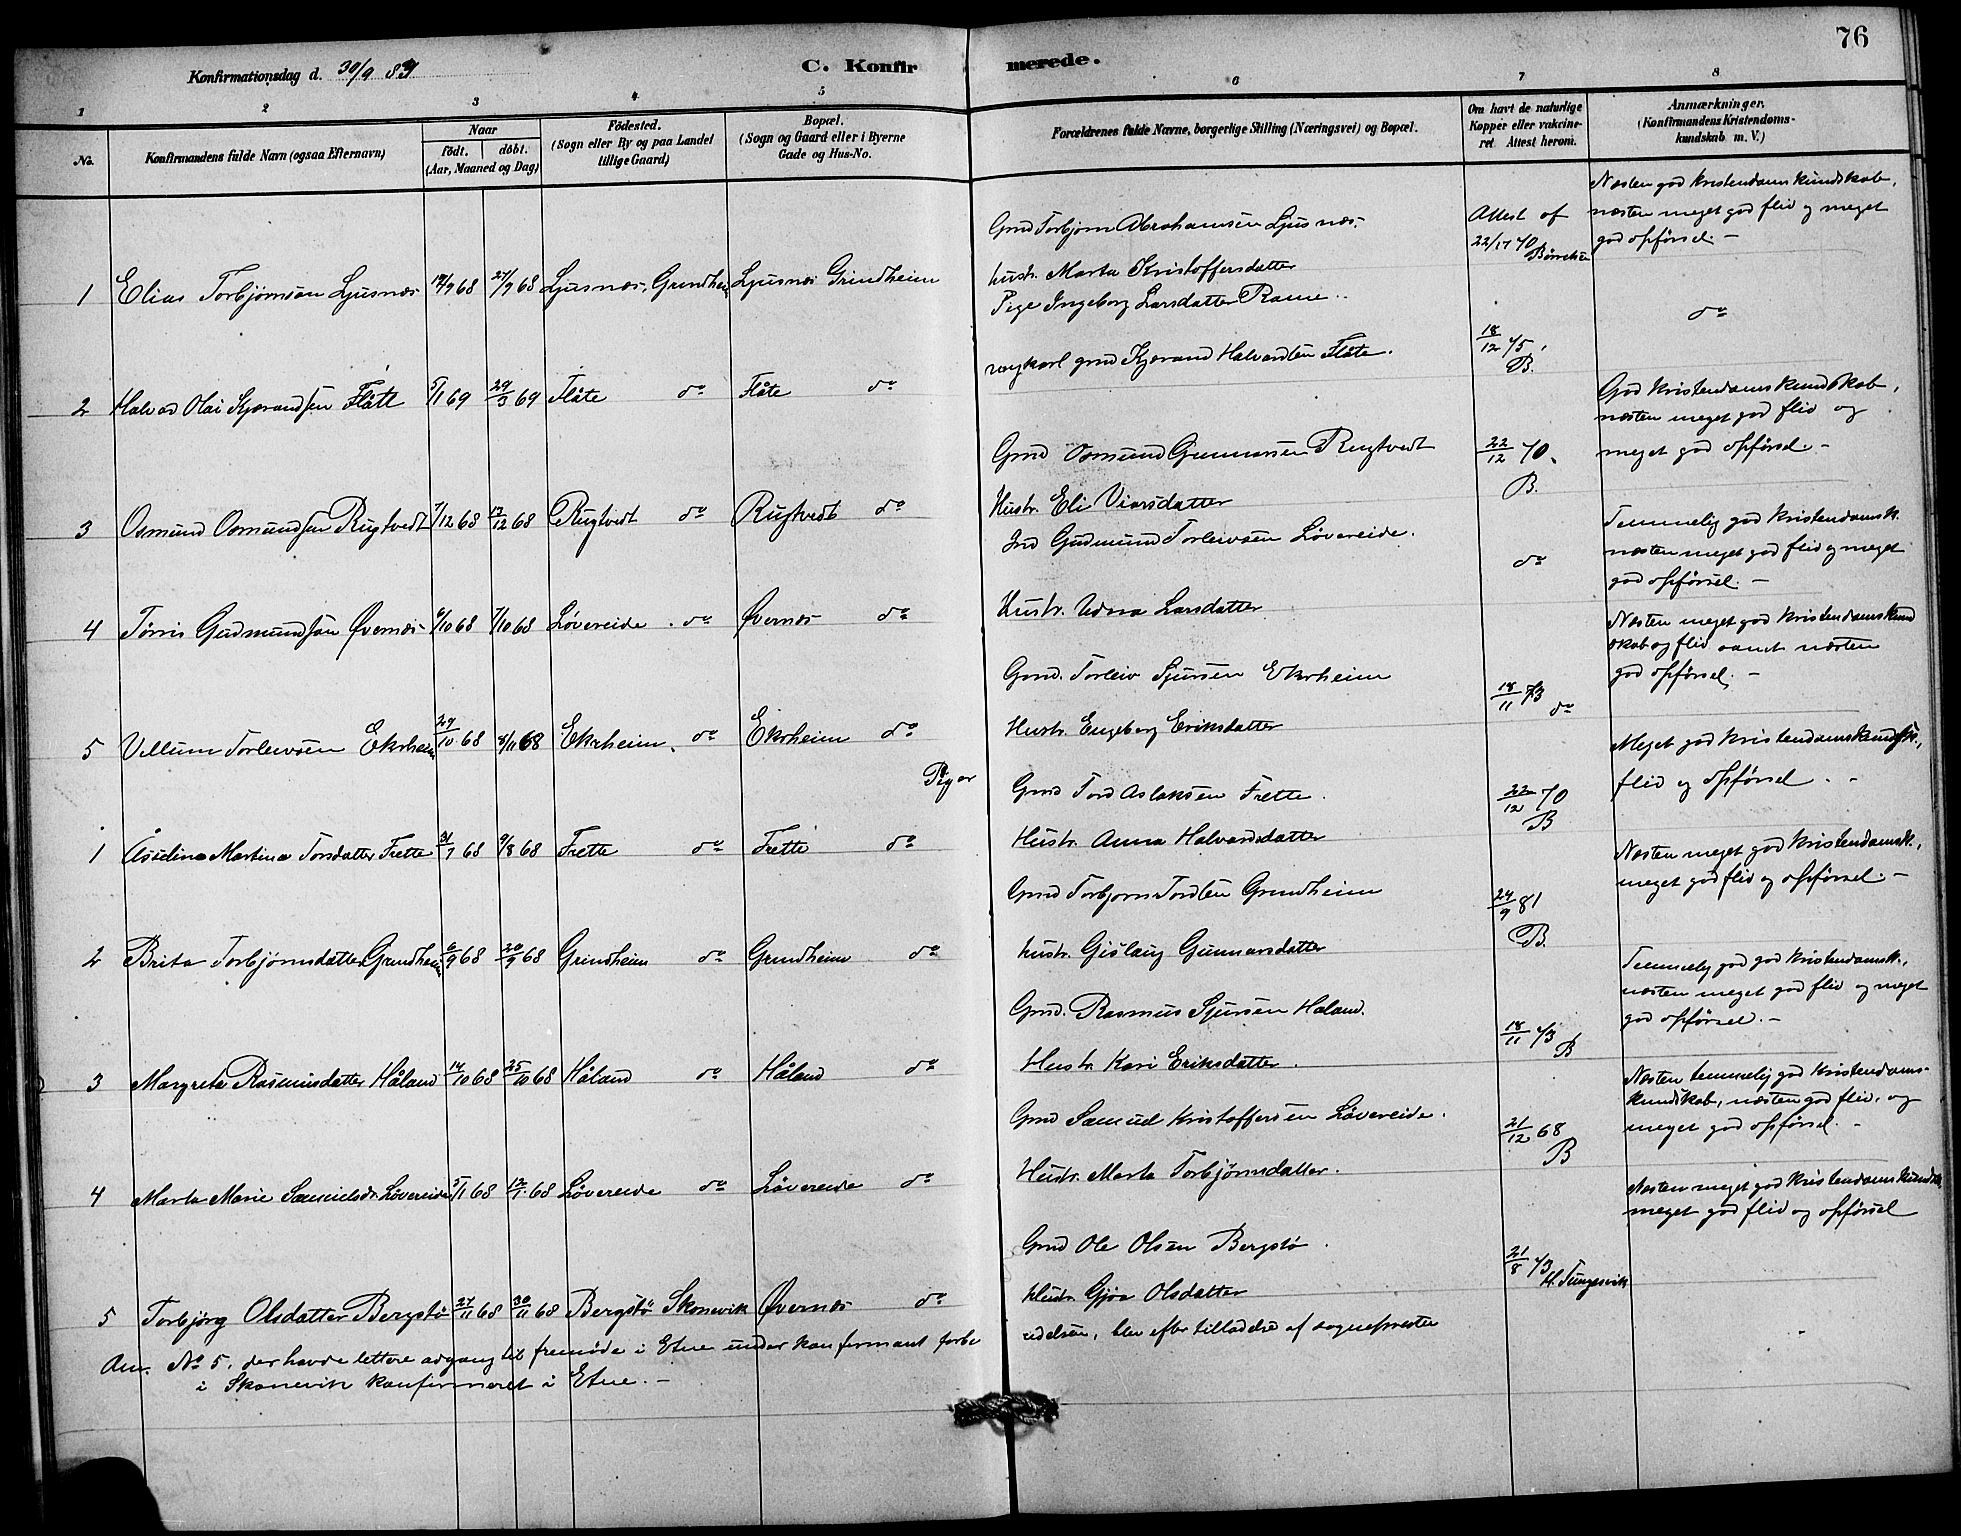 76
Konfirmationsdag d. 30/9 83
C. Konfirmerede.
1 2 3 4 5 6 7 8
No.
Konfirmandens fulde Navn (ogsaa Efternavn)
Naar
födt. döbt.
(Aar, Maaned og Dag)
Födested.
(Sogn eller By og paa Landet
tillige Gaard)
Bopæl.
(Sogn og Gaard eller i Byerne
Gade og Hus-No.
Forældrenes fulde Navne, borgerlige Stilling (Næringsvei) og Bopæl.
Om havt de naturlige
Kopper eller vakcine-
ret. Attest herom.
Anmærkninger.
(Konfirmandens Kristendoms-
kundskab m. V.)
1 Elias Torbjørnsen Ljusnes 27/9 68 Ljusnes, Grindheim Ljusnes Grindheim
Gmd Torbjørn Abrahamsen Ljusnæs.
hustr. Marta Kristoffersdatter
Attest of
22/12 70
Næsten god kristendomskundskab,
næsten meget god flid og meget
god opførsel. -
2 Halvor Olai Kjærandsen Flåte 5/1 69 29/3 69 Flåte do Flåte do
Pige Ingeborg Larsdatter Rame.
ungkarl gmd Kjærand Halvardsen Flåte.
18/12 75.
B.
do
3 Osmund Osmundsen Rugtvedt 7/12 68 13/12 68 Rugtvedt do Rugtvedt do
Gmd Osmund Gunnarsen Rugtvedt
Hustr. Eli Viarsdatter
22/12 70.
B.
God kristendomskundskab,
næsten meget god flid og
meget god opførsel. -
4 Tørris Gudmundsen Øvernes 6/10 68 7/10 68 Løvereide do Øvernes do
Ind Gudmund Torleivsen Løvereide.
Hustr. Udna Larsdatter
do
Temmelig god kristendomsk.
næsten meget god flid og meget
god opførsel. -
5 Villum Torleivsen Ekrheim 29/10 68 8/11 68 Ekrheim do Ekrheim do
Gmd. Torleiv Sjursen Ekrheim
Hustr. Engeborg Eriksdatter
18/11 73 do
Næsten meget god kristendomskund
skab og flid samt næsten
god opførsel. -
Piger
1 Åselina Martina Torsdatter Frette 31/7 68 9/8 68 Frette do Frette do
Gmd Tord Aslaksen Frette.
Hustr. Anna Halvardsdatter
22/12 70
B
Meget god kristendomskundsk.,
flid og opførsel. -
2 Brita Torbjørnsdatter Grindheim 6/9 68 20/9 68 Grindheim do Grindheim do
Gmd Torbjørn Tordsen Grindheim
hustr. Gislaug Gunnarsdatter
24/9 81
B.
Næsten meget god kristendomsk.,
meget god flid og opførsel. -
3 Margrete Rasmusdatter Håland 14/10 68 25/10 68 Håland do Håland do
Gmd. Rasmus Sjursen Håland.
Hustr Kari Eriksdatter.
18/11 73
B
Temmelig god god kristendomsk.,
næsten meget god flid og meget
god opførsel. -
4 Marta Marie Samuelsdr Løvereide 5/1 68 12/1 68 Løvereide do Løvereide do
Gmd Samuel Kristoffersen Løvereide.
Hustr. Marta Torbjørnsdatter.
21/12 68
B
Næsten temmelig god kristendoms-
kundskab, næsten god flid, og
meget god opførsel. -
5 Torbjørg Olsdatter Bergstø 27/11 68 30/11 68 Bergstø Skonevik Øvernes do
Gmd Ole Olsen Bergstø.
Hustr. Gjøa Olsdatter
21/8 73
H. Tungesvik
Næsten meget god kristendomskundsk.
meget god flid og opførsel
Anm. No 5, der havde lettere adgang til fremøde i Etne under konfirmant forbe
redelsen, blev efter tilladelse af sognepresten
i Skonevik konfirmeret i Etne. -